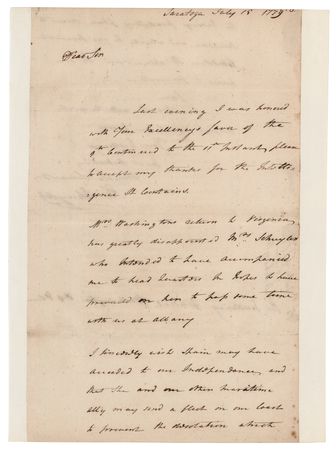 Saratoga July 15 1779
Dear Sir
Last evening I was honored
with Your Excellency's favor of the
9th Continued to the 11th Instant, please
to accept my thanks for the Intelli-
gence It Contains.
Mrs Washingtons return to Virginia,
has greatly disappointed Mrs Schuyler
who Intended to have accompanied
me to head Quarters In hopes to have
prevailed on her to pass some time
with us at albany
I sincerely wish Spain may have
acceded to our Independance, and
that She and our other maritime
ally may send a fleet on our Coast
to prevent the desolation which